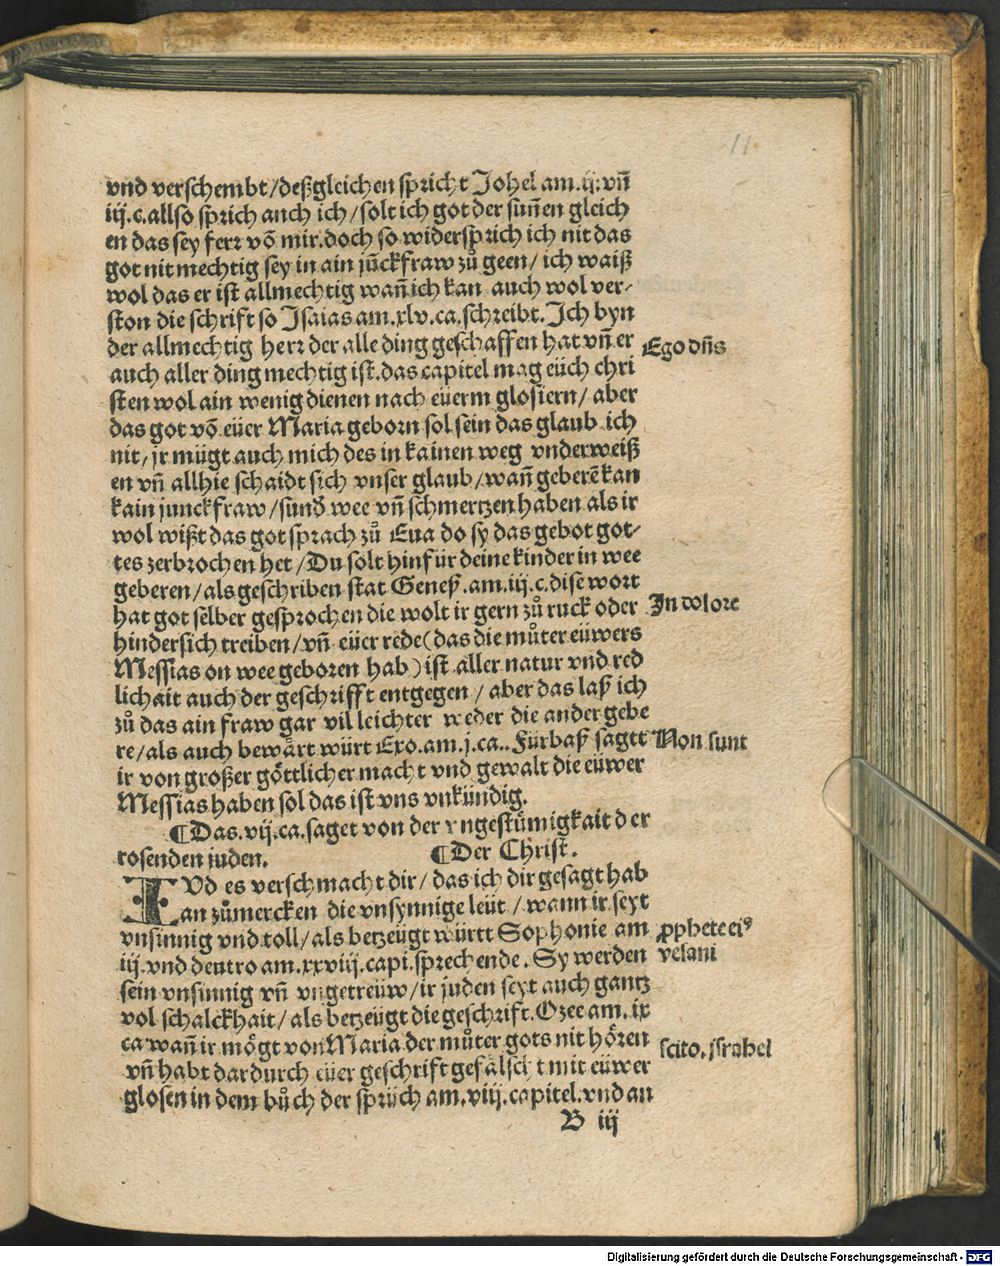 11.
vnd verschembt/deßgleichen spricht Johel am.ij.vñ
iij.c.allso sprich auch ich/solt ich got der suñen gleich
en das sey ferr võ mir.doch so widersprich ich nit das
got nit mechtig sey in ain jũckfraw zů geen/ich waiß
wol das er ist allmechtig wañ ich kan auch wol ver-
ston die schrift so Isaias am.xlv.ca.schreibt.Ich byn
der allmechtig herr der alle ding geschaffen hat vñ er
Ego dñs
auch aller ding mechtig ist.das capitel mag eüch chri
sten wol ain wenig dienen nach eüerm glosiern/aber
das got võ eüer Maria geborn sol sein das glaub ich
nit/jr mügt auch mich des in kainen weg vnderweiß
en vñ allhie schaidt sich vnser glaub/wañ geberẽ kan
kain junckfraw/sunď wee vñ schmertzen haben als ir
wol wißt das got sprach zů Eua do sy das gebot got-
tes zerbrochen het/Du solt hinfür deine kinder in wee
geberen/als geschriben stat Geneß.am.iij.c.dise wort
hat got selber gesprochen die wolt ir gern zů ruck oder
In dolore
hindersich treiben/vñ eüer rede(das die můter eüwers
Messias on wee geboren hab)ist aller natur vnd red
lichait auch der geschrifft entgegen/aber das laß ich
zů das ain fraw gar vil leichter weder die ander gebe
re/als auch bewårt würt Exo.am.j.ca..Fürbaß sagtt
Non sunt
ir von großer göttlicher macht vnd gewalt die eüwer
Messias haben sol das ist vns vnkündig.
¶Das.vij.ca.saget von der vngestůmigkait der
rosenden juden. ¶Der Christ.
IVd es verschmacht dir/das ich dir gesagt hab
an zůmercken die vnsynnige leüt/wann ir seyt
vnsinnig vnd toll/als betzeügt württ Sophonie am
ꝓphete eiꝰ
iij.vnd deutro am.xxviij.capi.sprechende.Sy werden
vesani
sein vnsinnig vñ vngetreüw/ir juden seyt auch gantz
vol schalckhait/als betzeügt die geschrift.Ozee am.ix
ca wañ ir mögt von Maria der můter gots nit hören
scito.jsrahel
vñ habt dardurch eüer geschrift gefälscht mit eüwer
glosen in dem bůch der sprüch am.viij.capitel.vnd an
B iij
Digitalisierung gefördert durch die Deutsche Forschungsgemeinschaft - DFG